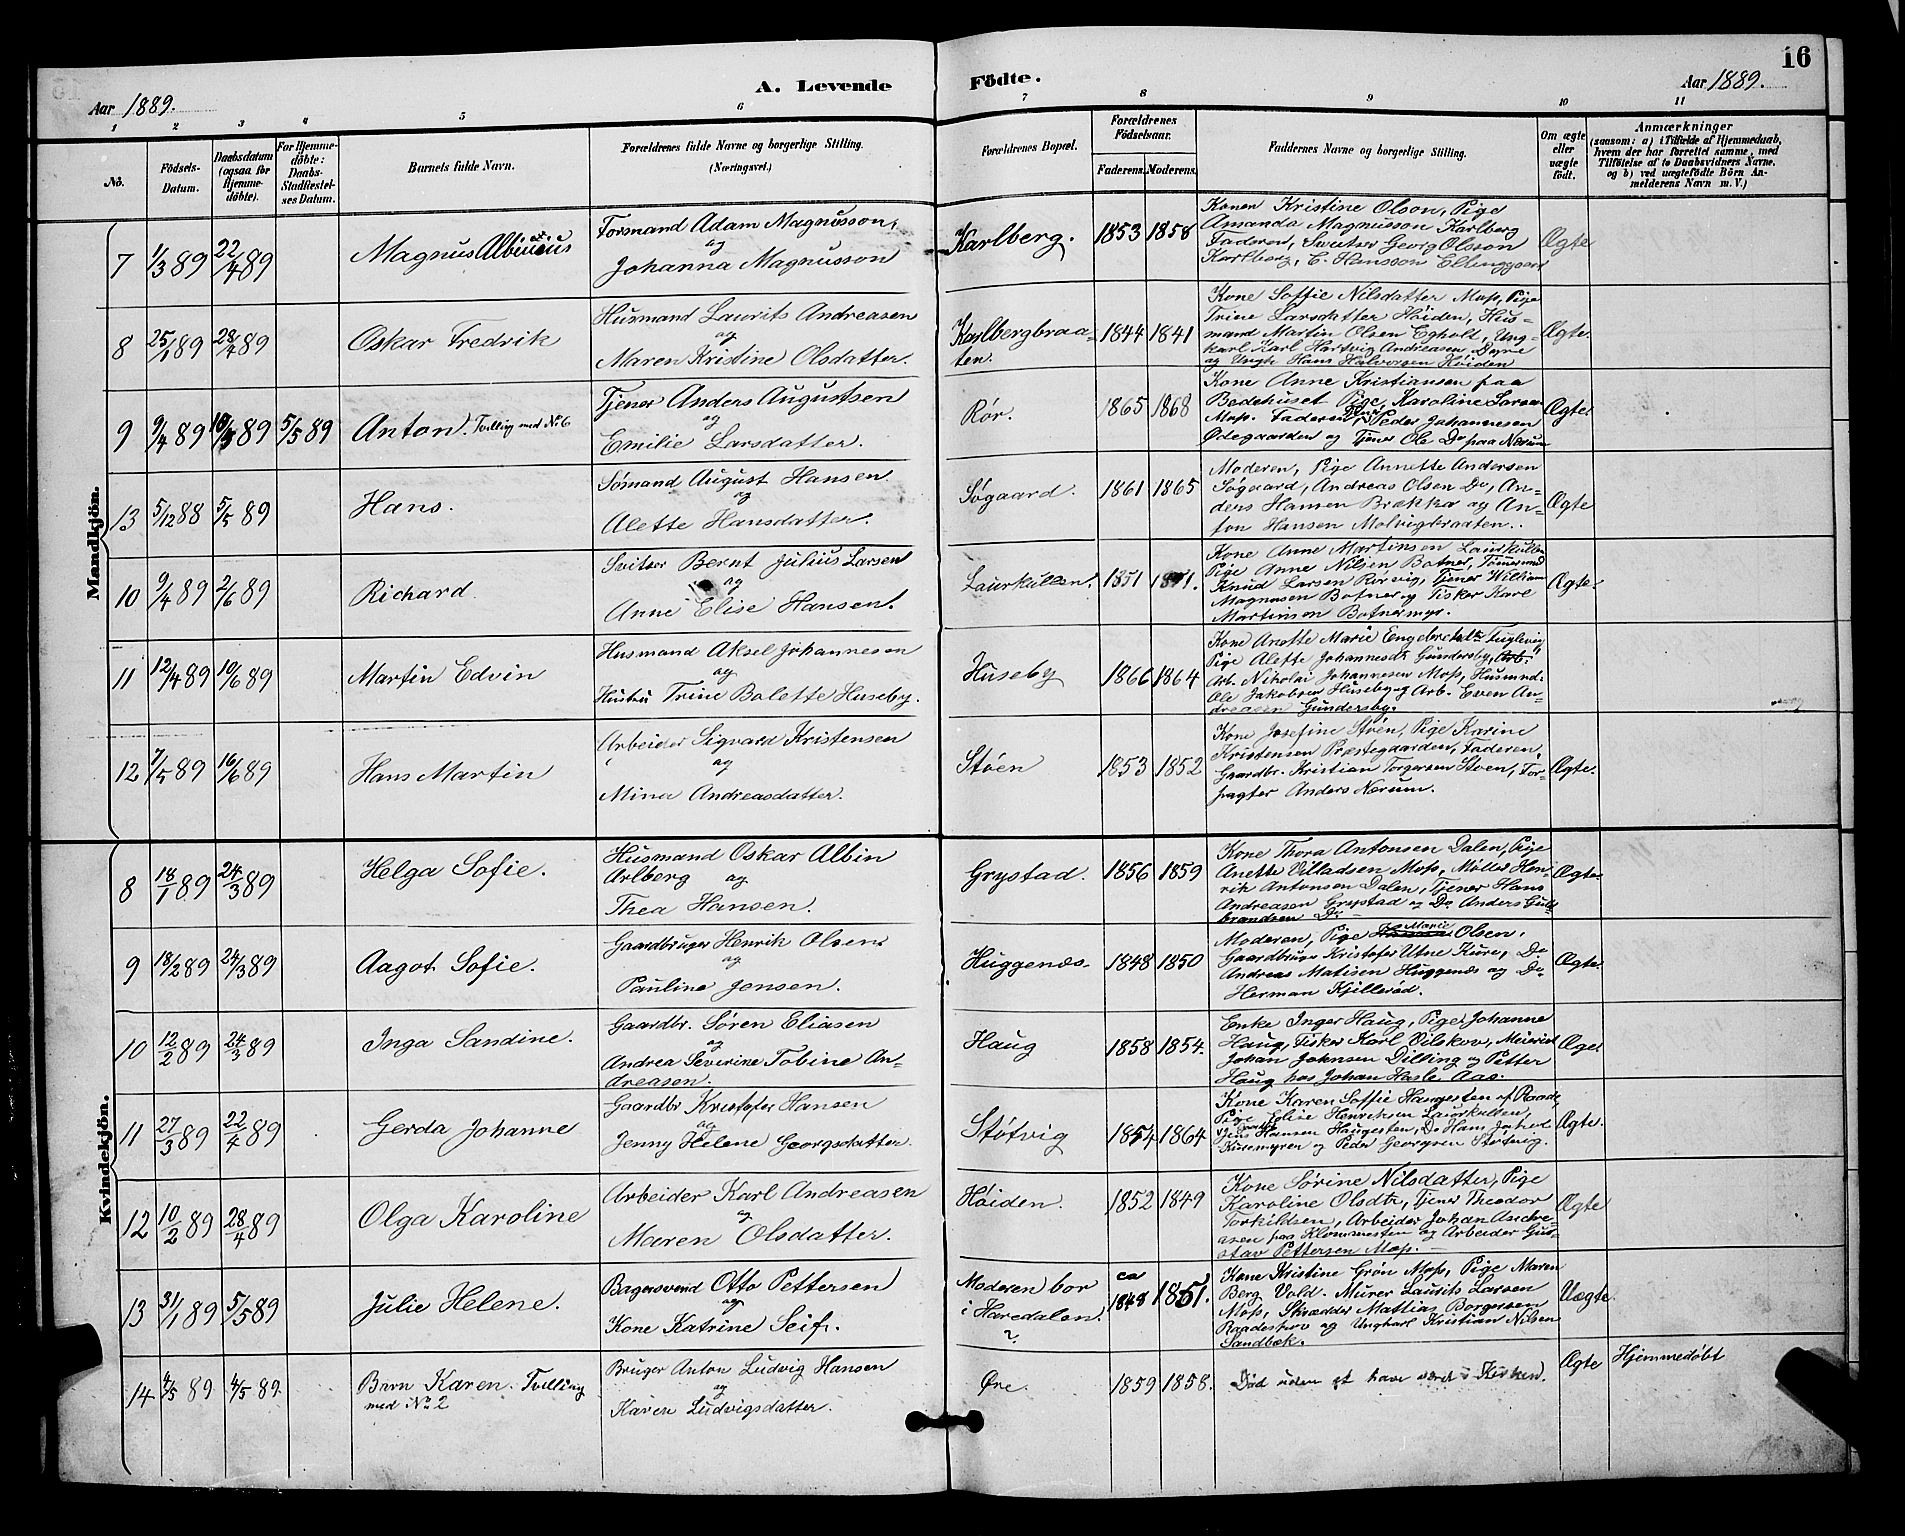 16
Aar 1889.
A. Levende Födte.
Aar 1889.
1 2 3 4 5 6 7 8 9 10 11
No.
Födsels-
Datum.
Daabsdatum
(ogsaa for
Hjemme-
döbte).
For Hjemme-
döbte:
Daabs-
Stadfæstel-
ses Datum.
Barnets fulde Navn.
Forældrenes fulde Navne og borgerlige Stilling.
(Næringsvei.)
Forældrenes Bopæl.
Forældrenes
Födselsaar.
Faderens. Moderens.
Faddernes Navne og borgerlige Stilling.
Om ægte
eller
uægte
födt.
Anmærkninger
(saasom: a) i Tilfælde af Hjemmedaab,
hvem der har forrettet samme, med
Tilföielse af to Daabsvidners Navne,
og b) ved uægtefödte Börn An-
melderens Navn m. V.)
Mandkjön.
7 1/3 89 22/4 89
Magnus
Formand Adam Magnusson,
og
Johanna Magnusson
Karlberg. 1853 1858
Konen Kristine Olson, Pige
Amanda Magnusson Karlberg
Faderen, Sveitser Georg Olsson
Karlberg, C. Hansson
Ægte
8 25/1 89 28/4 89
Oskar Fredrik
Husmand Laurits Andreasen
og
Maren Kristine Olsdatter.
Karlbergbraa-
ten.
1844 1841
Kone Soffie Nilsdatter Moss, Pige
Trine Larsdatter Höiden, Hus-
mand Martin Olsen Egholt, Ung-
karl Karl Hartvig Andreasen
og Ungk. Hans Halvorsen Höiden
Ægte.
9 9/4 89 10/3 89 5/5 89
Anton. Tvilling med No 6
Tjener Anders Augustsen
og
Emilie Larsdatter.
Rör. 1865 1868
Kone Anne Kristiansen paa
Badehuset Pige Karoline Larsen
Moss. Faderen, Peder Johannesen
Ødegaarden og Tjener Ole Do paa Nærum
Ægte.
13 5/12 88 5/5 89
Hans.
Sömand August Hansen
og
Alette Hansdatter.
Søgaard. 1861 1865
Moderen, Pige Annette Andersen
Søgaard, Andreas Olsen Do, An-
ders Hansen Brække og An-
ton Hansen Molvigbraaten.
Ægte
10 9/4 89 2/6 89
Richard
Svitser Bernt Julius Larsen
og
Anne Elise Hansen.
Laurkullen. 1851 1871.
Kone Anne Martinsen Laurkullen
Pige Anne Nilsen Botner, Tömmermd
Knud Larsen Rörvig, Tjener William
Magnusen Botner og Fisker Karl
Martinsen Botnermyr.
Ægte.
11 12/4 89 10/6 89
Martin Edvin
Husmand Aksel Johannesen
og
Hustru Trine Bolette Huseby.
Huseby 1866 1864
Kone Anette Marie Engebretsdtr Fuglevig
Pige Alette Johannesdtr Gundersby,
Arb. Nikolai Johannesen Moss, Husmnd.
Ole Jakobsen Huseby og Arb. Even An-
dreasen Gundersby.
12 7/5 89 16/6 89
Hans Martin
Arbeider Sigvard Kristensen
og
Mina Andreasdatter.
Støen 1853 1852
Kone Josefine Støen, Pige Karine
Kristensen Præstegaarden, Faderen,
Gaardbr. Kristian Torgersen Støen, For-
pagter Anders Nærum.
Ægte.
Kvindekjön.
8 18/1 89 24/3 89
Helga Sofie.
Husmand Oskar Albin
Arlberg og
Thea Hansen.
Grystad. 1856 1859
Kone Thora Antonsen Dalen, Pige
Anette Villadsen Moss, Møller Hen-
rik Antonsen Dalen, Tjener Hans
Andreasen Grystad og Do Anders Gul-
brandsen Do
Ægte.
9 18/2 89 24/3 89
Aagot Sofie.
Gaardbruger Henrik Olsen
og
Pauline Jensen.
Huggenæs. 1848 1850
Moderen, Pige Marie Olsen.
Gaardbruger Kristofer Utne Kure, Do
Andreas Matisen Huggenæs og Do
Herman Kjillerød.
Ægte.
10 12/2 89 24/3 89
Inga Sandine.
Gaardbr. Søren Eliasen
og
Andrea Severine Tobine An-
dreasen.
Haug 1858 1854.
Enke Inger Haug, Pige Johanne
Haug, Fisker Karl Vilskov, Meierist
Johan Johnsen Dilling og Petter
Haug hos Johan Hasle. Aas.
Æge.
11 27/3 89 22/4 89
Gerda Johanne
Gaardbr Kristofer Hansen
og
Jenny Helene Georgsdatter.
Støtvig 1854 1864
Kone Karen Soffie Haugesten af Raade,
Pige Elise Henriksen Laurkullen,
Hansen Haugesten, Do Hans Jakob
Kuremyren og Peder Georgsen Støtvig.
Ægte.
12 10/2 89 28/4 89
Olga Karoline
Arbeider Karl Andreasen
og
Maren Olsdatter.
Höiden. 1852 1849
Kone Sørine Nilsdatter, Pige
Karoline Olsdtr, Tjener Theodor
Torkildsen, Arbeider Johan Andre-
asen paa Klommesten og Arbeider Gus-
tav Pettersen Moss.
Ægte
13 31/1 89 5/5 89
Julie Helene.
Bagersvend Otto Pettersen
og
Kone Katrine Seif.
Moderen bor
i Haredalen.
?
ca
1848 1851.
Kone Kristine Grøn Moss, Pige Maren
Berg Vold. Murer Laurits Larsen
Moss, Skrædder Mattias Borgersen
Raadeshov og Ungkarl Kristian Nilsen
Sandbæk.
Uægte.
14 4/5 89 4/5 89.
Barn Karen. Tvilling
med No 2
Bruger Anton Ludvig Hansen
og
Karen Ludvigsdatter.
Øre. 1859 1858.
Død uden at have været i Kirken.
Ægte
Hjemmedøbt